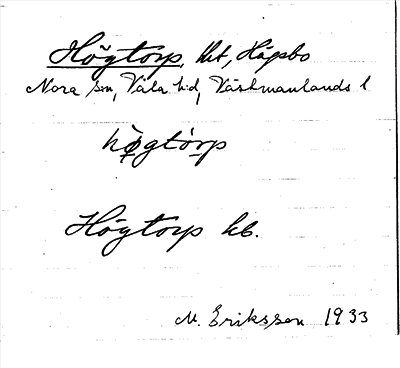 Högtorp, lht, Häpsbo
Nora sn, Våla hd, Västmanlands l
hö̀gtórp
Högtorp kb.
M. Eriksson 1933